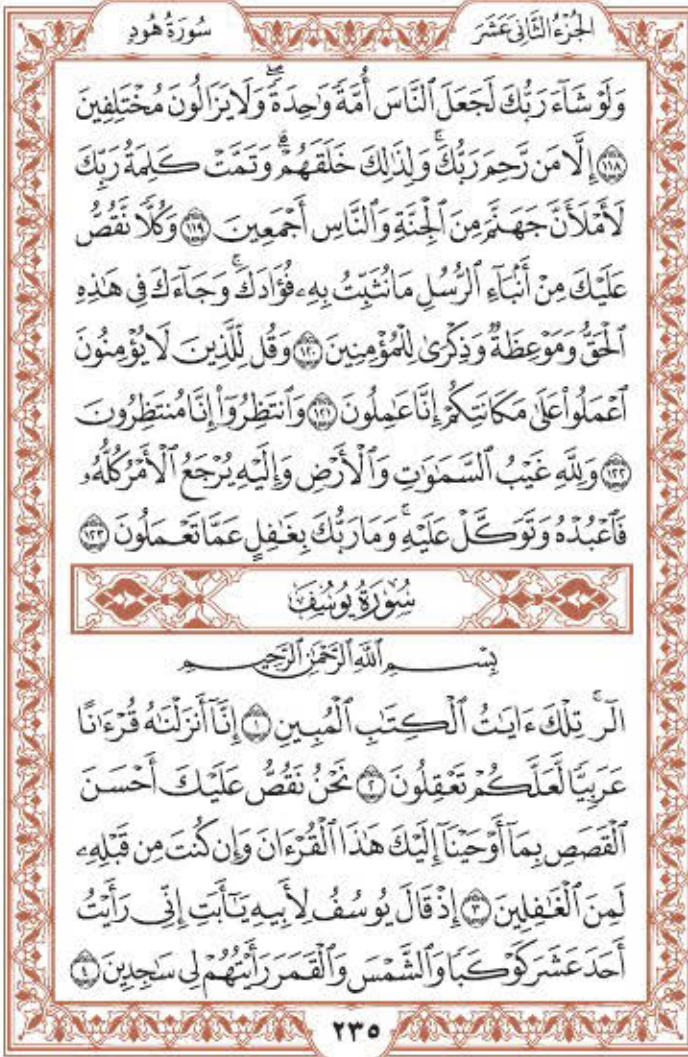 الجُزْءُ الثَّانِي عَشَرَ سُورَةُ هُودٍ
وَلَوْ شَآءَ رَبُّكَ لَجَعَلَ ٱلنَّاسَ أُمَّةً وَٰحِدَةًۖ وَلَا يَزَالُونَ مُخْتَلِفِينَ
١١٨ إِلَّا مَن رَّحِمَ رَبُّكَۚ وَلِذَٰلِكَ خَلَقَهُمْۗ وَتَمَّتْ كَلِمَةُ رَبِّكَ
لَأَمْلَأَنَّ جَهَنَّمَ مِنَ ٱلْجِنَّةِ وَٱلنَّاسِ أَجْمَعِينَ ١١٩ وَكُلًّا نَّقُصُّ
عَلَيْكَ مِنْ أَنۢبَآءِ ٱلرُّسُلِ مَا نُثَبِّتُ بِهِۦ فُؤَادَكَۚ وَجَآءَكَ فِى هَٰذِهِ
ٱلْحَقُّ وَمَوْعِظَةٌ وَذِكْرَىٰ لِلْمُؤْمِنِينَ ١٢٠ وَقُل لِّلَّذِينَ لَا يُؤْمِنُونَ
ٱعْمَلُوا۟ عَلَىٰ مَكَانَتِكُمْ إِنَّا عَٰمِلُونَ ١٢١ وَٱنتَظِرُوٓا۟ إِنَّا مُنتَظِرُونَ
١٢٢ وَلِلَّهِ غَيْبُ ٱلسَّمَٰوَٰتِ وَٱلْأَرْضِ وَإِلَيْهِ يُرْجَعُ ٱلْأَمْرُ كُلُّهُۥ
فَٱعْبُدْهُ وَتَوَكَّلْ عَلَيْهِۚ وَمَا رَبُّكَ بِغَٰفِلٍ عَمَّا تَعْمَلُونَ ١٢٣
سُورَةُ يُوسُفَ
بِسْمِ ٱللَّهِ ٱلرَّحْمَٰنِ ٱلرَّحِيمِ
الٓرۚ تِلْكَ ءَايَٰتُ ٱلْكِتَٰبِ ٱلْمُبِينِ ١ إِنَّآ أَنزَلْنَٰهُ قُرْءَٰنًا
عَرَبِيًّا لَّعَلَّكُمْ تَعْقِلُونَ ٢ نَحْنُ نَقُصُّ عَلَيْكَ أَحْسَنَ
ٱلْقَصَصِ بِمَآ أَوْحَيْنَآ إِلَيْكَ هَٰذَا ٱلْقُرْءَانَ وَإِن كُنتَ مِن قَبْلِهِۦ
لَمِنَ ٱلْغَٰفِلِينَ ٣ إِذْ قَالَ يُوسُفُ لِأَبِيهِ يَٰٓأَبَتِ إِنِّى رَأَيْتُ
أَحَدَ عَشَرَ كَوْكَبًا وَٱلشَّمْسَ وَٱلْقَمَرَ رَأَيْتُهُمْ لِى سَٰجِدِينَ ٤
٢٣٥